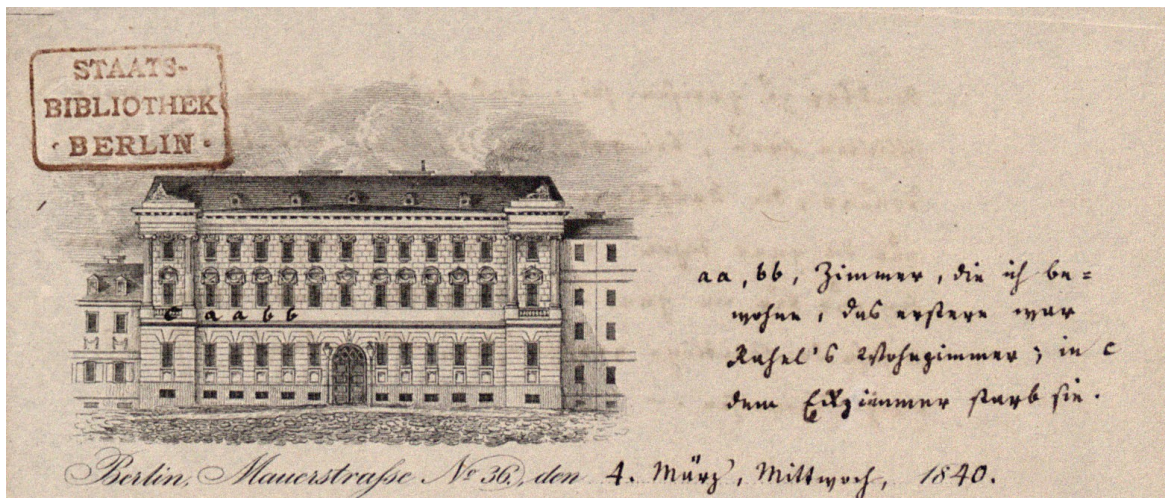 STAATS-
BIBLIOTHEK
· BERLIN ·
c a a b b
aa, bb, Zimmer, die ich be=
wohne, das erstere war
Rahel's Wohnzimmer; in c
dem Eckzimmer starb sie.
Berlin, Mauerstraße No 36, den 4. März, Mittwoch, 1840.